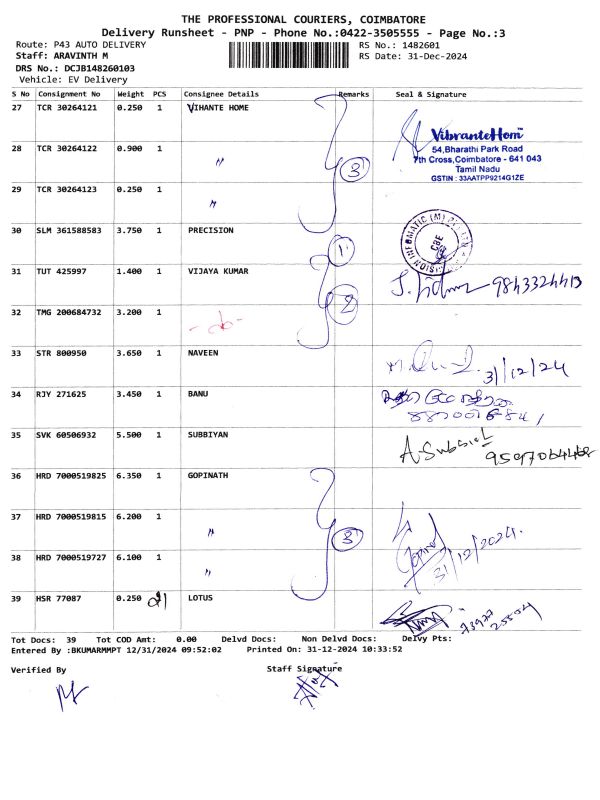 THE PROFESSIONAL COURIERS, COIMBATORE
Delivery Runsheet - PNP - Phone No.:0422-3505555 - Page No.:3
Route: P43 AUTO DELIVERY RS No.: 1482601
Staff: ARAVINTH M RS Date: 31-Dec-2024
DRS No.: DCJB148260103
Vehicle: EV Delivery
S No Consignment No Weight PCS Consignee Details Remarks Seal & Signature
27 TCR 30264121 0.250 1 VIHANTE HOME
VibranteHom
54,Bharathi Park Road
7th Cross,Coimbatore - 641 043
Tamil Nadu
GSTIN : 33AATPP9214G1ZE
28 TCR 30264122 0.900 1 〃 3
29 TCR 30264123 0.250 1 〃
30 SLM 361588583 3.750 1 PRECISION 1
31 TUT 425997 1.400 1 VIJAYA KUMAR
32 TMG 200684732 3.200 1 - do - 2
33 STR 800950 3.650 1 NAVEEN 31/12/24
34 RJY 271625 3.450 1 BANU
35 SVK 60506932 5.500 1 SUBBIYAN A. Subbiah
36 HRD 7000519825 6.350 1 GOPINATH
37 HRD 7000519815 6.200 1 〃 3 31/12/2024.
38 HRD 7000519727 6.100 1 〃
39 HSR 77087 0.250 21 LOTUS 73977 25504
Tot Docs: 39 Tot COD Amt: 0.00 Delvd Docs: Non Delvd Docs: Delvy Pts:
Entered By :BKUMARMMPT 12/31/2024 09:52:02 Printed On: 31-12-2024 10:33:52
Verified By Staff Signature